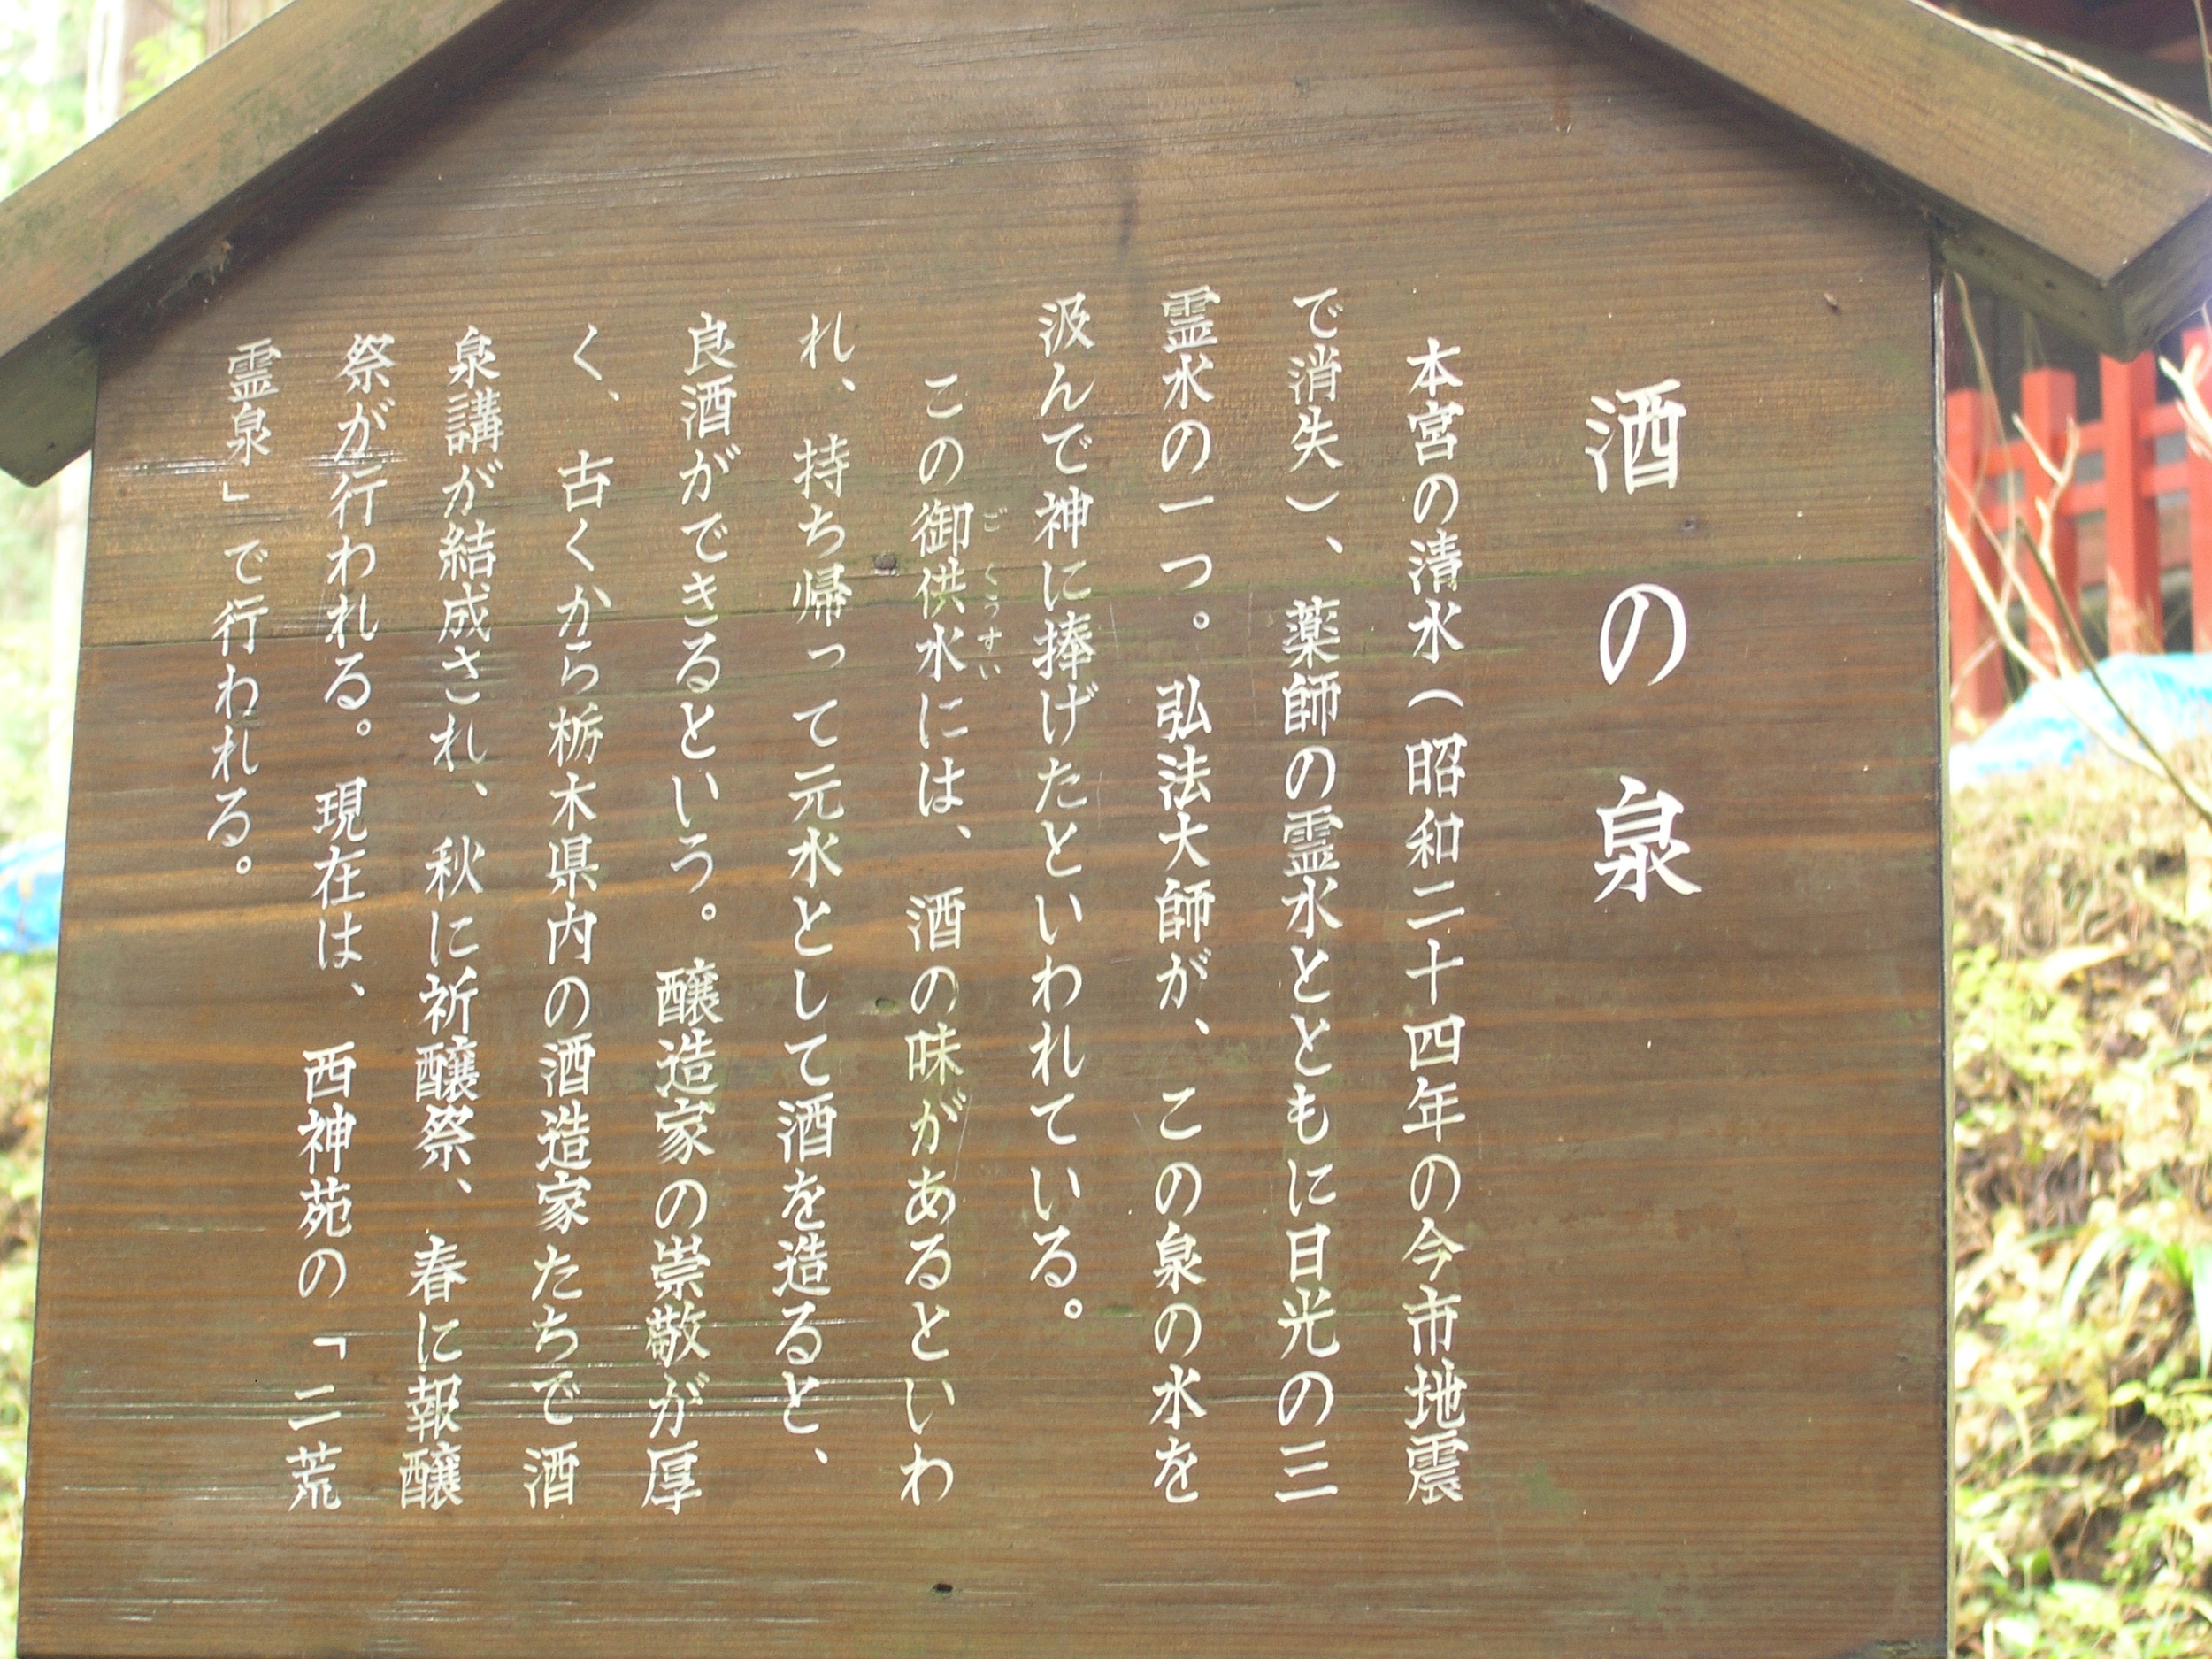 酒の泉
本宮の清水（昭和二十四年の今市地震
で消失）、薬師の霊水とともに日光の三
霊水の一つ。弘法大師が、この泉の水を
汲んで神に捧げたといわれている。
この御供水には、酒の味があるといわ
ごくうすい
れ、持ち帰って元水として酒を造ると、
良酒ができるという。醸造家の崇敬が厚
く、古くから栃木県内の酒造家たちで酒
泉講が結成され、秋に祈醸祭、春に報醸
祭が行われる。現在は、西神苑の「二荒
霊泉」で行われる。